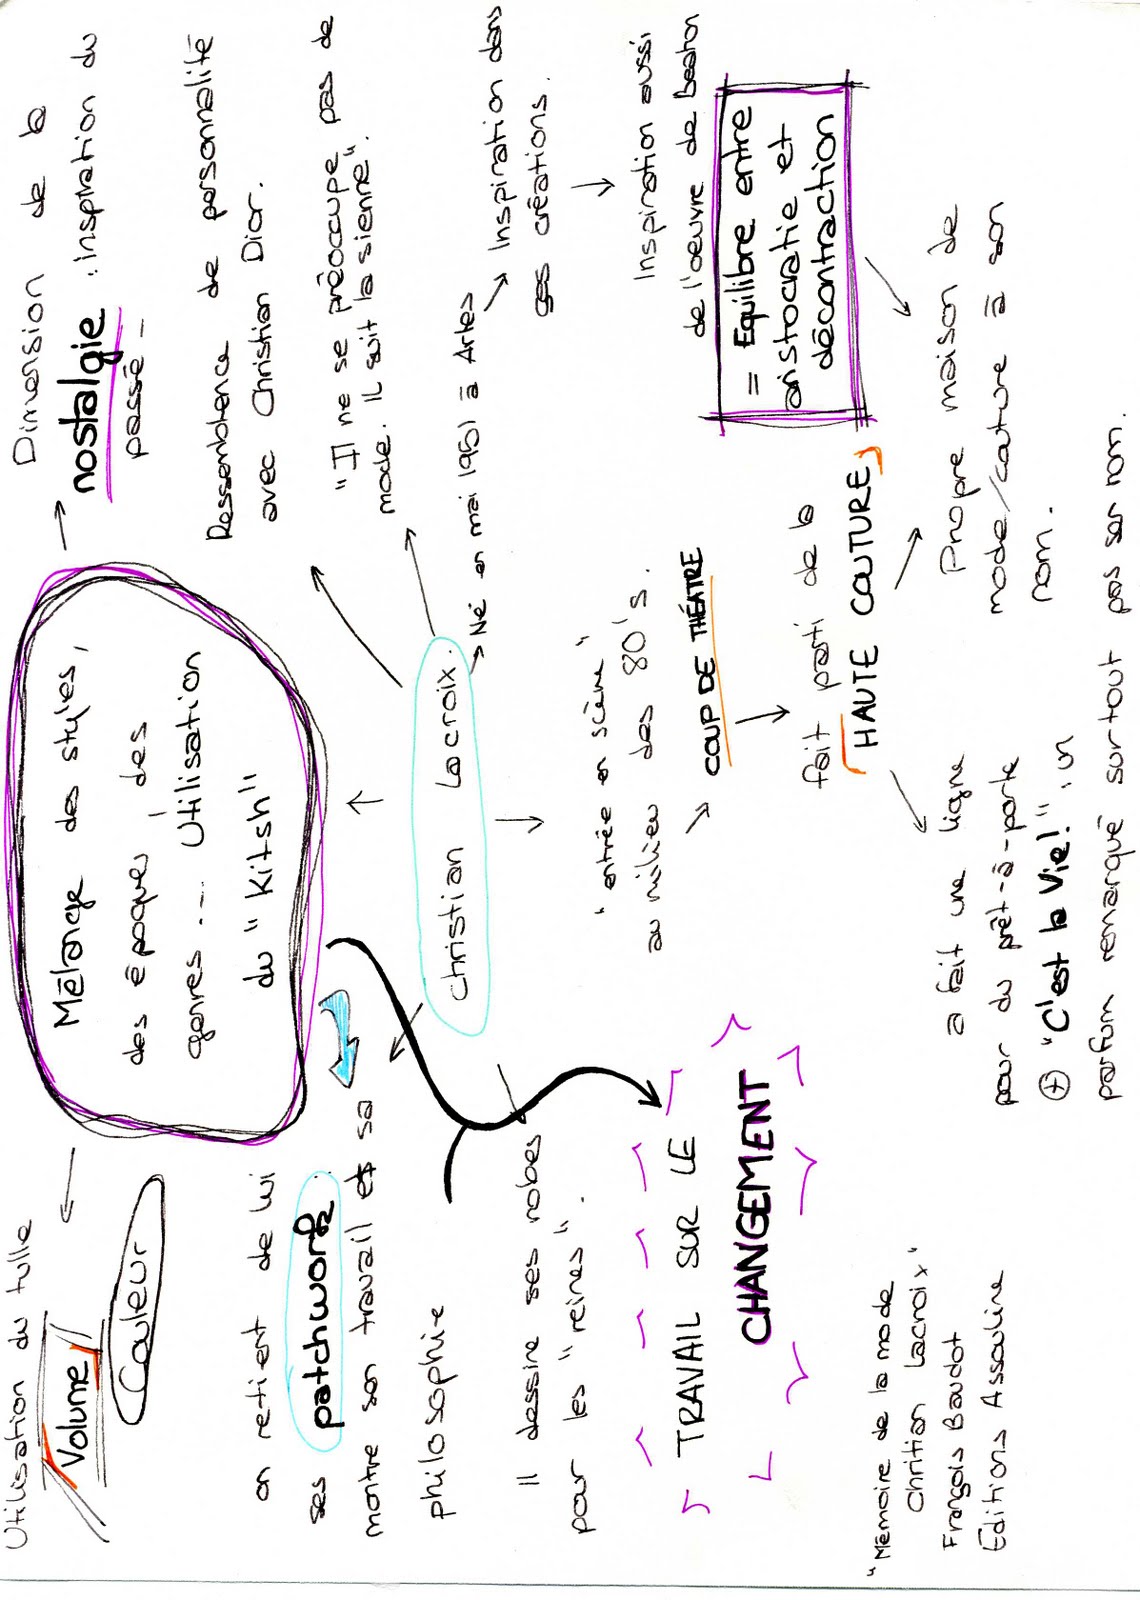 Utilisation du tulle
Volume
Couleur
Mélange des styles,
des époque, des
genres ... Utilisation
du "Kitsh"
Dimension de la
nostalgie : inspiration du
passé -
Ressemblence de personnalité
avec Christian Dior.
"Il ne se préoccupe pas de
mode. Il suit la sienne".
Né en mai 1951 à Arles
Inspiration dans
ses créations.
Inspiration aussi
de l'oeuvre de Beaton
= Equilibre entre
aristocratie et
décontraction
christian Lacroix.
on retient de lui
ses patchworks :
montre son travail et sa
philosophie
Il dessine ses robes
pour les "reines".
TRAVAIL SUR LE
CHANGEMENT
"entrée en scène"
au milieu des 80's.
COUP DE THÉATRE
fait parti de la
HAUTE COUTURE,
Propre maison de
mode/couture à son
nom.
a fait une ligne
pour du prêt-à-porte
+ "C'est la Vie!", un
parfum remarqué surtout pas son nom.
"Mémoire de la mode
Chritian Lacroix"
François Baudot
Editions Assouline